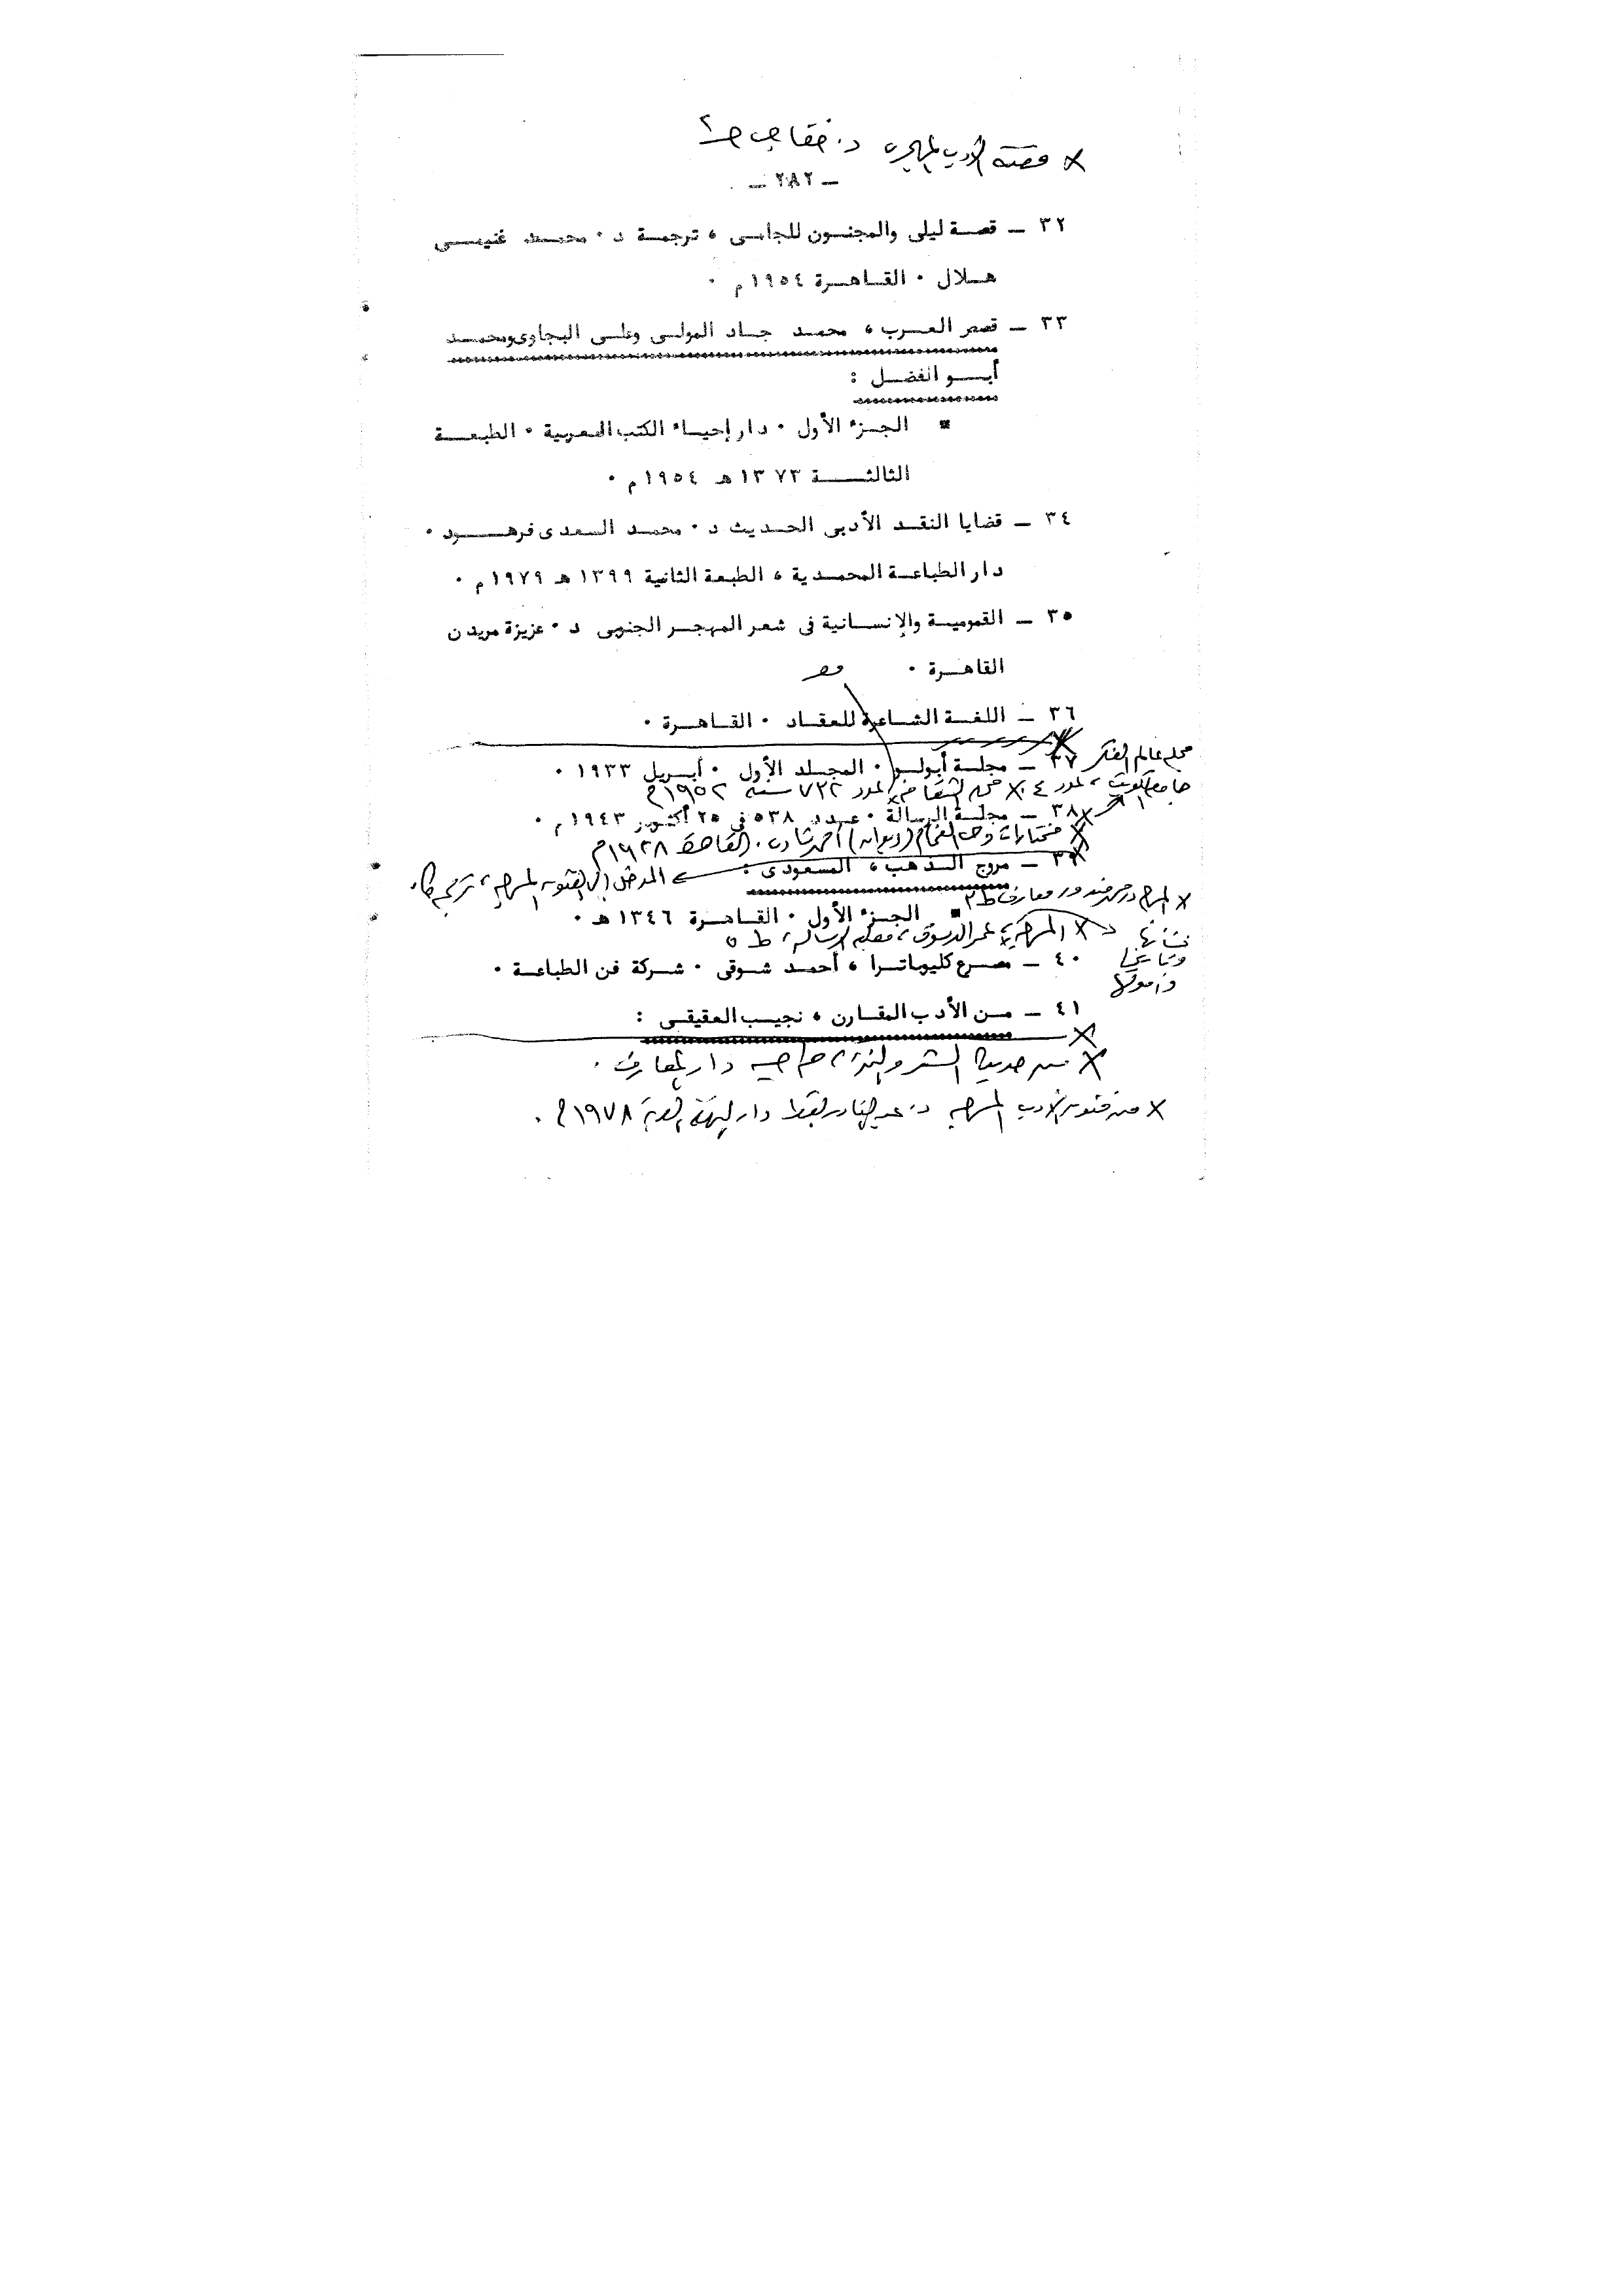 × قصة الأدب المهجري د. خفاجي ج٢
— ٢٨٢ —
٣٢ — قصة ليلى والمجنون للجامى ، ترجمة د ٠ محمد غنيمى
هلال ٠ القاهرة ١٩٥٤ م ٠
٣٣ — قصص العرب ، محمد جاد المولى وعلى البجاوى ومحمد
أبو الفضل :
الجزء الأول ٠ دار إحياء الكتب العربية ٠ الطبعة
الثالثة ١٣٧٣ هـ ١٩٥٤ م ٠
٣٤ — قضايا النقد الأدبى الحديث د ٠ محمد السعدى فرهود ٠
دار الطباعة المحمدية ، الطبعة الثانية ١٣٩٩ هـ ١٩٧٩ م ٠
٣٥ — القومية والإنسانية فى شعر المهجر الجنوبى د ٠ عزيزة مريدن
القاهرة ٠
٣٦ — اللغة الشاعرة للعقاد ٠ القاهرة ٠
مجلة عالم الفكر
٣٧ — مجلة أبولو ٠ المجلد الأول ٠ أبريل ١٩٣٣ ٠
جامعة الكويت ، العدد ٤ × مجلة الثقافة العدد ٧٢٢ سنة ١٩٥٢ م
٣٨ — مجلة الرسالة ٠ عدد ٥٣٨ فى ٢٥ أكتوبر ١٩٤٣ م ٠
× مختارات وحى العام (ديوان) أحمد شادى . القاهرة ١٩٢٨ م
٣٩ — مروج الذهب ، المسعودى :
المدخل إلى الفنون المسرحية ،
× المسرح د محمد مندور معارف ط ٣
الجزء الأول ٠ القاهرة ١٣٤٦ هـ ٠
× المسرحية ، عمر الدسوقى ، الرسالة ، ط ٥
نشأتها
وتاريخها
وأصولها
٤٠ — مصرع كليوباترا ، أحمد شوقى ٠ شركة فن الطباعة ٠
٤١ — من الأدب المقارن ، نجيب العقيقى :
× من حديث الشعر والنثر ، طه حسين دار المعارف .
× من فنون الأدب المسرحية د . عبد القادر القط دار النهضة العربية ١٩٧٨ م .